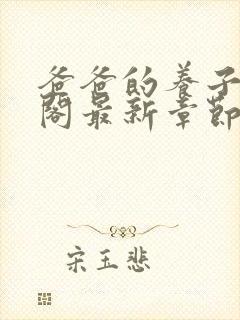 爸爸的养子
阁最新章节
宋玉悲